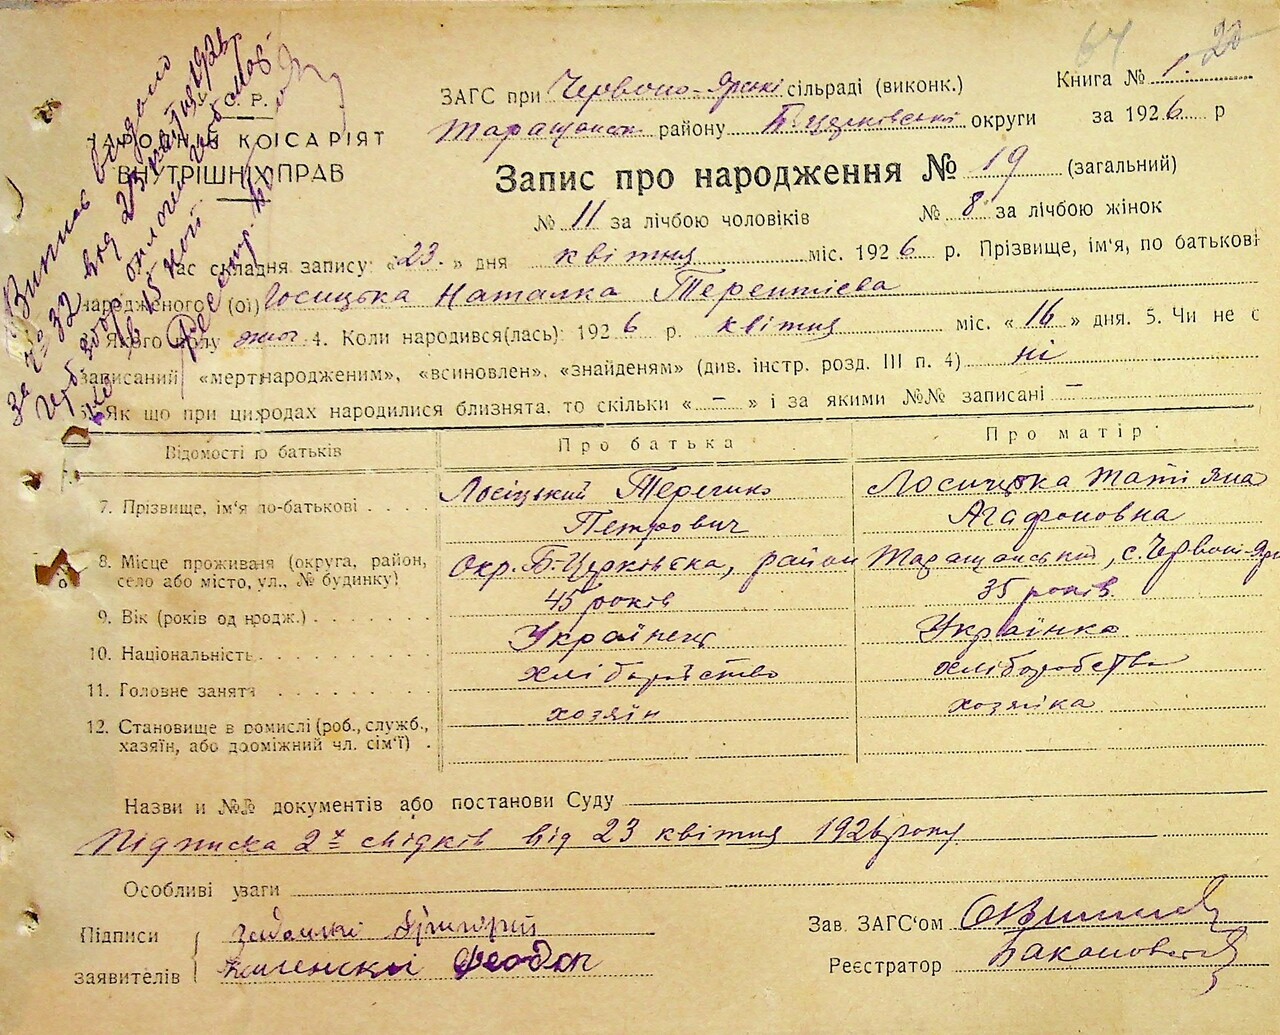 64 20
У. С. Р.
НАРОДНІЙ КОМІСАРІЯТ
ВНУТРІШНІХ ПРАВ
Випис видано
за № 32 від 23 квітня 1926
ЗАГС при Червоно-Ярські сільраді (виконк.)
Книга № 1.
Таращанськ району Б. Церківської округи за 1926 р
Запис про народження № 19 (загальний)
№ 11 за лічбою чоловіків № 8 за лічбою жінок
Час складня запису: «23.» дня квітня міс. 1926 р. Прізвище, ім'я, по батькові
народженого (ої) Лосицька Наталка Терентієва
якого полу жіноч 4. Коли народився(лась): 1926 р. квітня міс. «16» дня. 5. Чи не є
записаний «мертвнародженим», «всиновлен», «знайденям» (див. інстр. розд. III п. 4) ні
6. Як що при цих родах народилися близнята, то скільки «–» і за якими №№ записані –
Відомості про батьків Про батька Про матір
7. Прізвище, ім'я по-батькові Лосіцький Терешко Лосицька Татіяна
Петрович Агафоновна
8. Місце проживаня (округа, район, Окр. Б-Церківська, район Таращанський, с. Червоні-Яри
село або місто, ул., № будинку)
9. Вік (років од нродж.) 45 років 35 років
10. Національність Українець Українка
11. Головне занятя хліборобство хліборобство
12. Становище в промислі (роб., служб., хозяїн хозяїка
хазяїн, або допоміжний чл. сім'ї)
Назви и №№ документів або постанови Суду
Підписка 2х свідків від 23 квітня 1926 року
Особливі уваги
Підписи Григорій
заявителів Феодос
Зав. ЗАГС'ом
Реєстратор